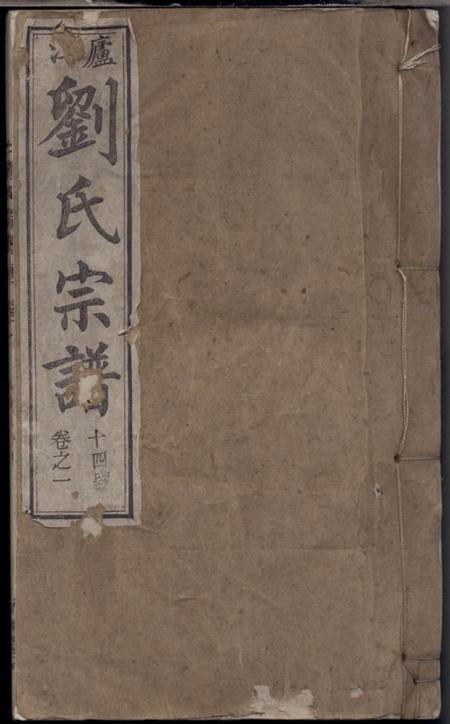 廬
劉氏宗譜
十四
卷之一